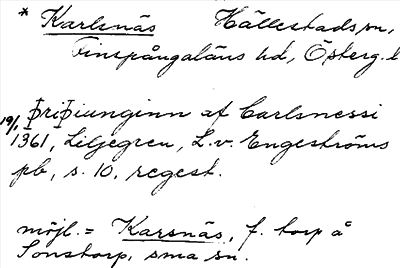 * Karlsnäs Hällestads sn,
Finspångaläns hd, Österg. l
þriþiunginn af Carlsnessi
19/1 1361, Liljegren, L. v. Engeströms
pb, s. 10, regest.
möjl. = Karsnäs, f. torp å
Sonstorp, sma sn.